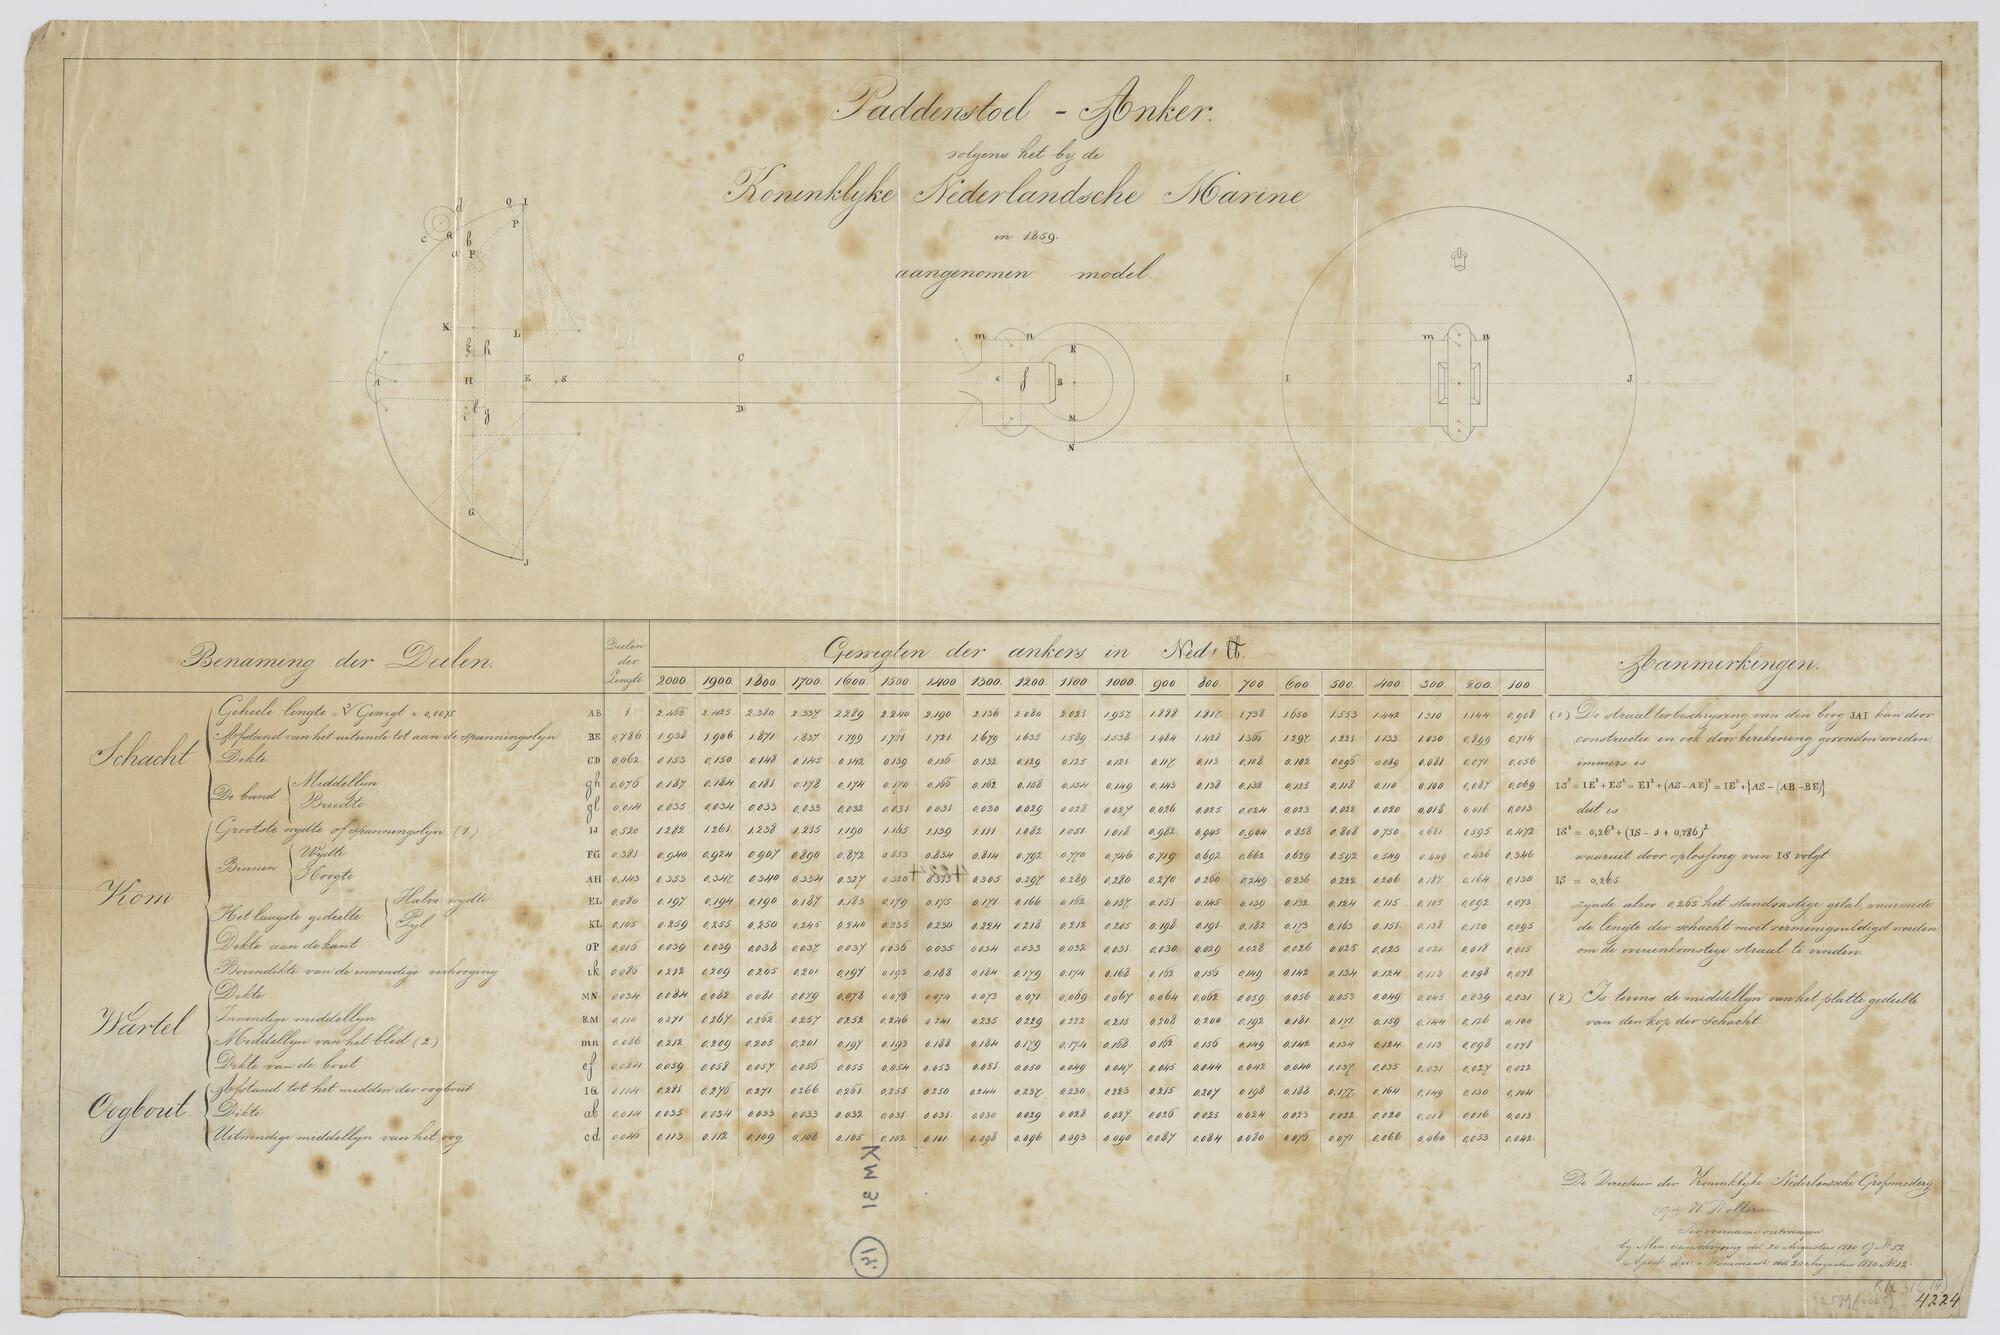 Paddenstoel - Anker.
volgens het by de
Koninklyke Nederlandsche Marine
in 1859.
aangenomen model.
d O I
P
c Q b
a F
K L
k h
A H E S
i l g
G
J
C
D
m n
R
e f B
M
N
m n
I J
Benaming der Deelen.
Deelen der Lengte
Gewigten der ankers in Ned: ℔.
Aanmerkingen.
2000. 1900. 1800. 1700. 1600. 1500 1400 1300. 1200. 1100 1000. 900 800. 700 600. 500. 400. 300. 200. 100.
Schacht
Geheele lengte = ∛ Gewigt × 0,0075 AB 1. 2.466 2.425 2.380 2.337 2.289 2.240 2.190 2.136 2.080 2.021 1.957 1.888 1.817 1.738 1.650 1.553 1.442 1.310 1.144 0,908
Afstand van het uiteinde tot aan de spanningslyn BE 0,786 1.938 1.906 1.871 1.837 1.799 1.721 1.679 1.635 1.589 1.538 1.484 1.428 1.366 1.297 1.221 1.133 1.030 0,899 0,714
Dikte CD 0,062 0,153 0,150 0,148 0,145 0,142 0,139 0,136 0,132 0,129 0,125 0,121 0,117 0,113 0,108 0,102 0,096 0,089 0,081 0,071 0,056
De band Middellyn gh 0,076 0,187 0,184 0,181 0,178 0,174 0,170 0,166 0,162 0,158 0,154 0,149 0,143 0,138 0,132 0,125 0,118 0,110 0,100 0,087 0,069
Breedte gl 0,014 0,035 0,034 0,033 0,033 0,032 0,031 0,031 0,030 0,029 0,028 0,027 0,026 0,025 0,024 0,023 0,022 0,020 0,018 0,016 0,013
Kom
Grootste wydte of spanningslyn (1) IJ 0,520 1.282 1.261 1.238 1.215 1.190 1.165 1.139 1.111 1.082 1.051 1.018 0,982 0,945 0,904 0,858 0,808 0,750 0,681 0,595 0,472
Binnen Wydte FG 0,381 0,940 0,924 0,907 0,890 0,872 0,853 0,834 0,814 0,792 0,770 0,746 0,719 0,692 0,662 0,629 0,592 0,549 0,436 0,346
Hoogte AH 0,143 0,353 0,347 0,340 0,334 0,327 0,320 0,313 0,305 0,297 0,289 0,280 0,270 0,260 0,249 0,236 0,222 0,206 0,187 0,164 0,130
Het laagste gedeelte Halve wydte EL 0,080 0,197 0,194 0,190 0,187 0,183 0,179 0,175 0,171 0,166 0,162 0,157 0,151 0,145 0,139 0,132 0,124 0,115 0,105 0,092 0,073
Pyl KL 0,105 0,259 0,255 0,250 0,245 0,240 0,235 0,230 0,224 0,218 0,212 0,205 0,198 0,191 0,182 0,173 0,163 0,151 0,138 0,120 0,095
Dikte aan de kant OP 0,016 0,039 0,039 0,038 0,037 0,037 0,036 0,035 0,034 0,033 0,032 0,031 0,030 0,029 0,028 0,026 0,025 0,023 0,021 0,018 0,015
Bovendikte van de inwendige verhooging ik 0,086 0,212 0,209 0,205 0,201 0,197 0,193 0,188 0,184 0,179 0,174 0,168 0,162 0,156 0,149 0,142 0,134 0,124 0,113 0,098 0,078
Wartel
Dikte MN 0,034 0,084 0,082 0,081 0,079 0,078 0,076 0,074 0,073 0,071 0,069 0,067 0,064 0,062 0,059 0,056 0,053 0,049 0,045 0,039 0,031
Inwendige middellyn RM 0,110 0,271 0,267 0,262 0,257 0,252 0,246 0,241 0,235 0,229 0,222 0,215 0,208 0,200 0,192 0,181 0,171 0,159 0,144 0,126 0,100
Middellyn van het bled (2) mn 0,086 0,212 0,209 0,205 0,201 0,197 0,193 0,188 0,184 0,179 0,174 0,168 0,162 0,156 0,149 0,142 0,134 0,124 0,113 0,098 0,078
Dikte van de bout ef 0,024 0,059 0,058 0,057 0,056 0,055 0,054 0,053 0,051 0,050 0,049 0,047 0,045 0,044 0,042 0,040 0,037 0,035 0,031 0,027 0,022
Oogbout.
Afstand tot het midden der oogbout IQ 0,114 0,281 0,276 0,271 0,266 0,261 0,255 0,250 0,244 0,237 0,230 0,223 0,215 0,207 0,198 0,188 0,177 0,164 0,149 0,130 0,104
Dikte ab 0,014 0,035 0,034 0,033 0,033 0,032 0,031 0,031 0,030 0,029 0,028 0,027 0,026 0,025 0,024 0,023 0,022 0,020 0,018 0,016 0,013
Uitwendige middellyn van het oog cd 0,046 0,113 0,112 0,109 0,108 0,105 0,102 0,101 0,098 0,096 0,093 0,090 0,087 0,084 0,080 0,076 0,071 0,066 0,060 0,053 0,042
(1) De straal ter beschryving van den boog JAI kan door
constructie en ook door berekening gevonden worden.
immers is
IS² = IE² + ES² = EI² + (AS-AE)² = IE² + {AS - (AB - BE)}
dat is
IS² = 0,26² + (IS - 1 + 0,786)²
waaruit door oplossing van IS volgt
IS = 0,265
zynde alzoo 0,265 het standvastige getal, waarmede
de lengte der schacht moet vermenigvuldigd worden
om de overeenkomstige straal te vinden.
(2) Is tevens de middellyn van het platte gedeelte
van den kop der schacht
De Directeur der Koninklyke Nederlandsche Grofsmedery
(get) W. Wolfson
Ter overname ontvangen
by Min: aanschryving dd. 20 Augustus 1860 G N° 52
20 Augustus 1860 N° 12.
4224
KM 31
(12)
KM 31 (14)
4224